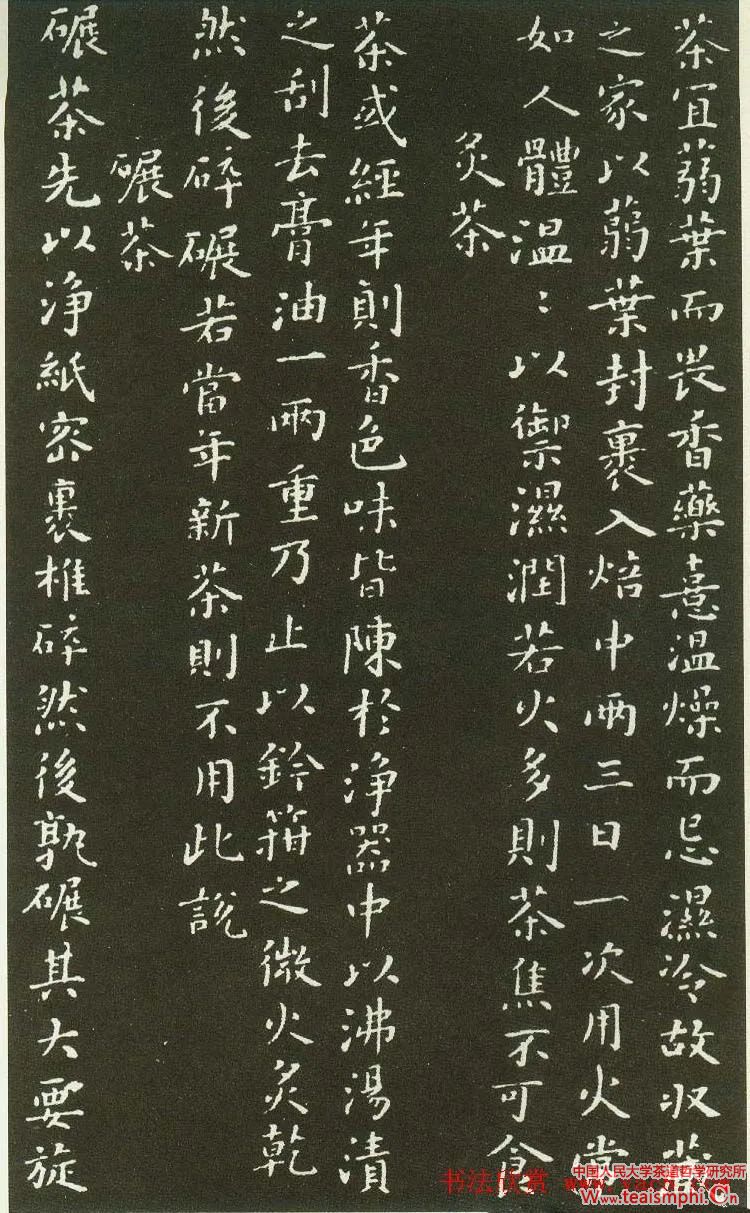 茶宜蒻葉而畏香藥憙温燥而忌濕冷故収藏
之家以蒻葉封裹入焙中兩三日一次用火常
如人體温〻以禦濕潤若火多則茶焦不可食
炙茶
茶或經年則香色味皆陳於淨器中以沸湯漬
之刮去膏油一兩重乃止以鈐箝之微火炙乾
然後碎碾若當年新茶則不用此說
碾茶
碾茶先以淨紙密裹椎碎然後孰碾其大要旋
书法欣赏
中国人民大学茶道哲学研究所
www.teaismphi.cn